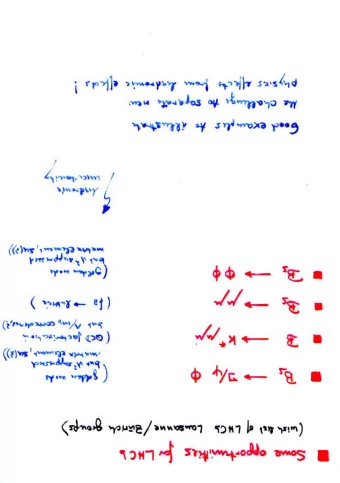 Some opportunities for LHCb
(wish list of LHCb Lausanne/Zürich groups)
Bs → J/ψ φ (golden mode
but λ² suppressed
matrix element, SU(3))
B → K* μμ (QCD factorization
but Λ/mb corrections
Bs → μμ (fB → lattice)
Bs → φφ (golden mode
but λ² suppressed
matrix element, SU(3))
hadronic
uncertainty
Good examples to illustrate
the challenge to separate new
physics effects from hadronic effects !